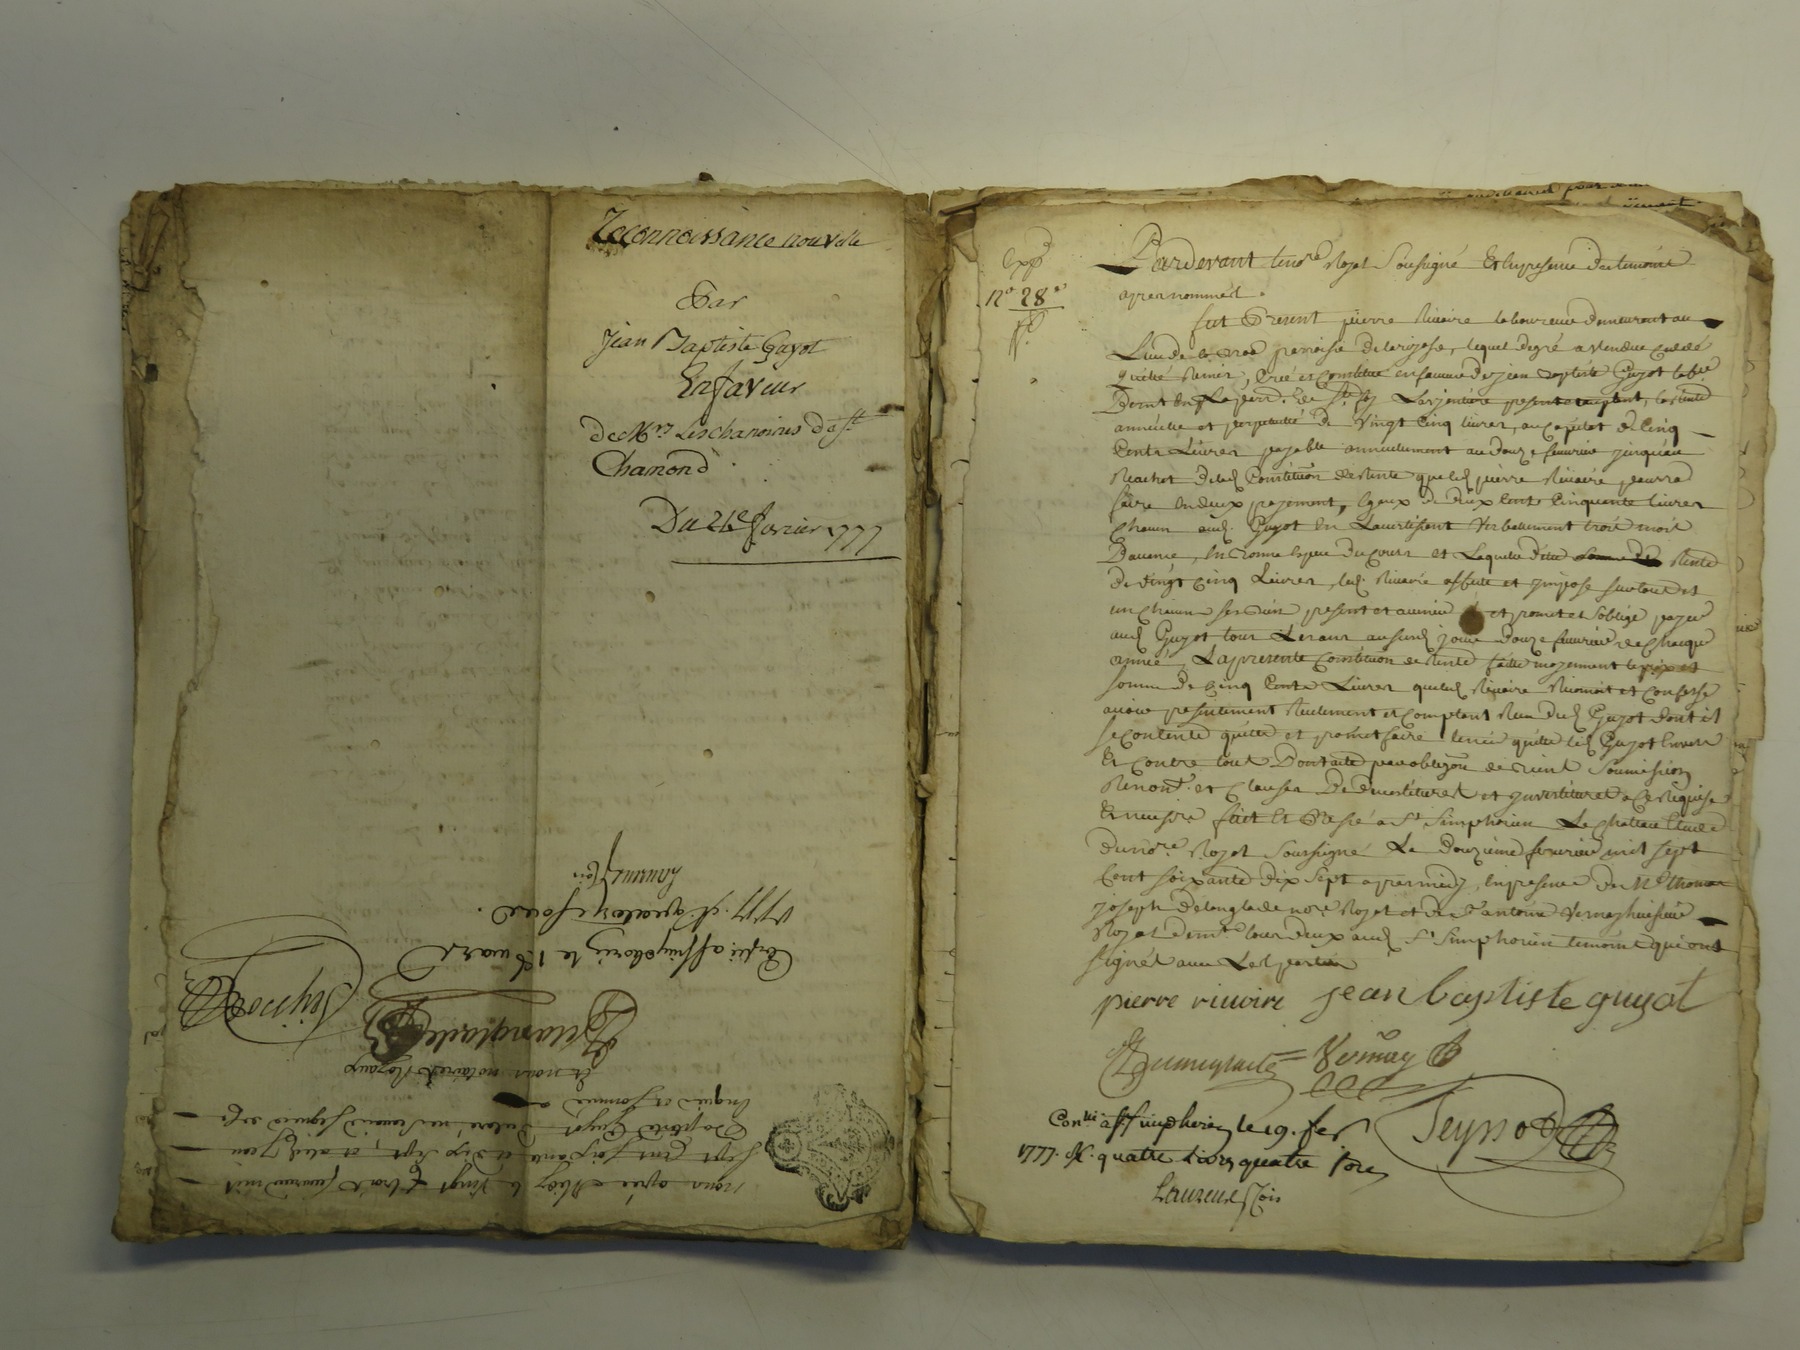 Reconnoissance nouvelle
Par
Jean Baptiste Guyot
En faveur
de Mrs Les chanoines de St
Chamond
Du 26e fevrier 1777
nona apres Midy le Vingt trois fevrier mil
Sept Cent soixante et Dix Sept, et a led Jean
Baptiste Guyot Declaré ne Scavoir Signer de ce
Enquis et sommé
Et nous notaires Royaux
Delanglade
Con. a st simphorien le 1er mars
1777. R. quatorze sous.
Laurenson
Exp
No 28e
Pardevant le nore Royal Soussigné Et En presence des temoins
apres nommés.
fut Present pierre Rivoire laboureur demeurant au
Lieu de paroisse de larajasse, lequel de gré a Vendu Cedé
quitté Remis, Créé et Constitué en faveur de jean baptiste Guyot
present acceptant, la Rente
annuelle et perpetuelle de Vingt Cinq livres, au Capital de Cinq
Cents Livres payable annuellement au Douze fevrier jusqu'au
Rachat de lad Constitution de Rente que led pierre Rivoire pourra
faire En deux payements Egaux de deux Cents Cinquante livres
Chacun aud. Guyot En L'avertissant Verbalement trois mois
Davance, En Bonne Espece du Cours et Laquelle Rente
De Vingt Cinq Livres, led. Rivoire affecte et impose sur tous et
un Chacun ses Biens presents et avenir et promet et s'oblige payer
aud Guyot tous Les ans ausurd jour douze fevrier de Chaque
année, La presente Constitution de Rente faitte moyennant le prix et
somme de Cinq Cents Livres que led Rivoire Reconnoit et Confesse
avoir presentement Reellement et Comptant Reçu dud Guyot dont il
se Contente quitte et promet faire tenir quitte led Guyot Envers
Et Contre tous Dont acte par obligaon de Biens Soumission
Renonon. et Clauses De Devestitures et investitures a Ce Requises
Et necesre. fait Et Passé a St Simphorien Le Chateau Etude
du nore. Royal Soussigné Le Douzieme fevrier mil sept
Cent soixante dix Sept apres midy, En presence de Me thomas
joseph Delanglade nore Royal et de Sr antoine Vernay huissier
Royal demt tous deux aud St Simphorien temoins qui ont
signé avec Les parties
pierre rivoire jean baptiste guyot
Delanglade Vernay
Con.lle a st simphorien le 19. fer
1777. R. quatre livres quatre sous
Laurenson
Peyssod